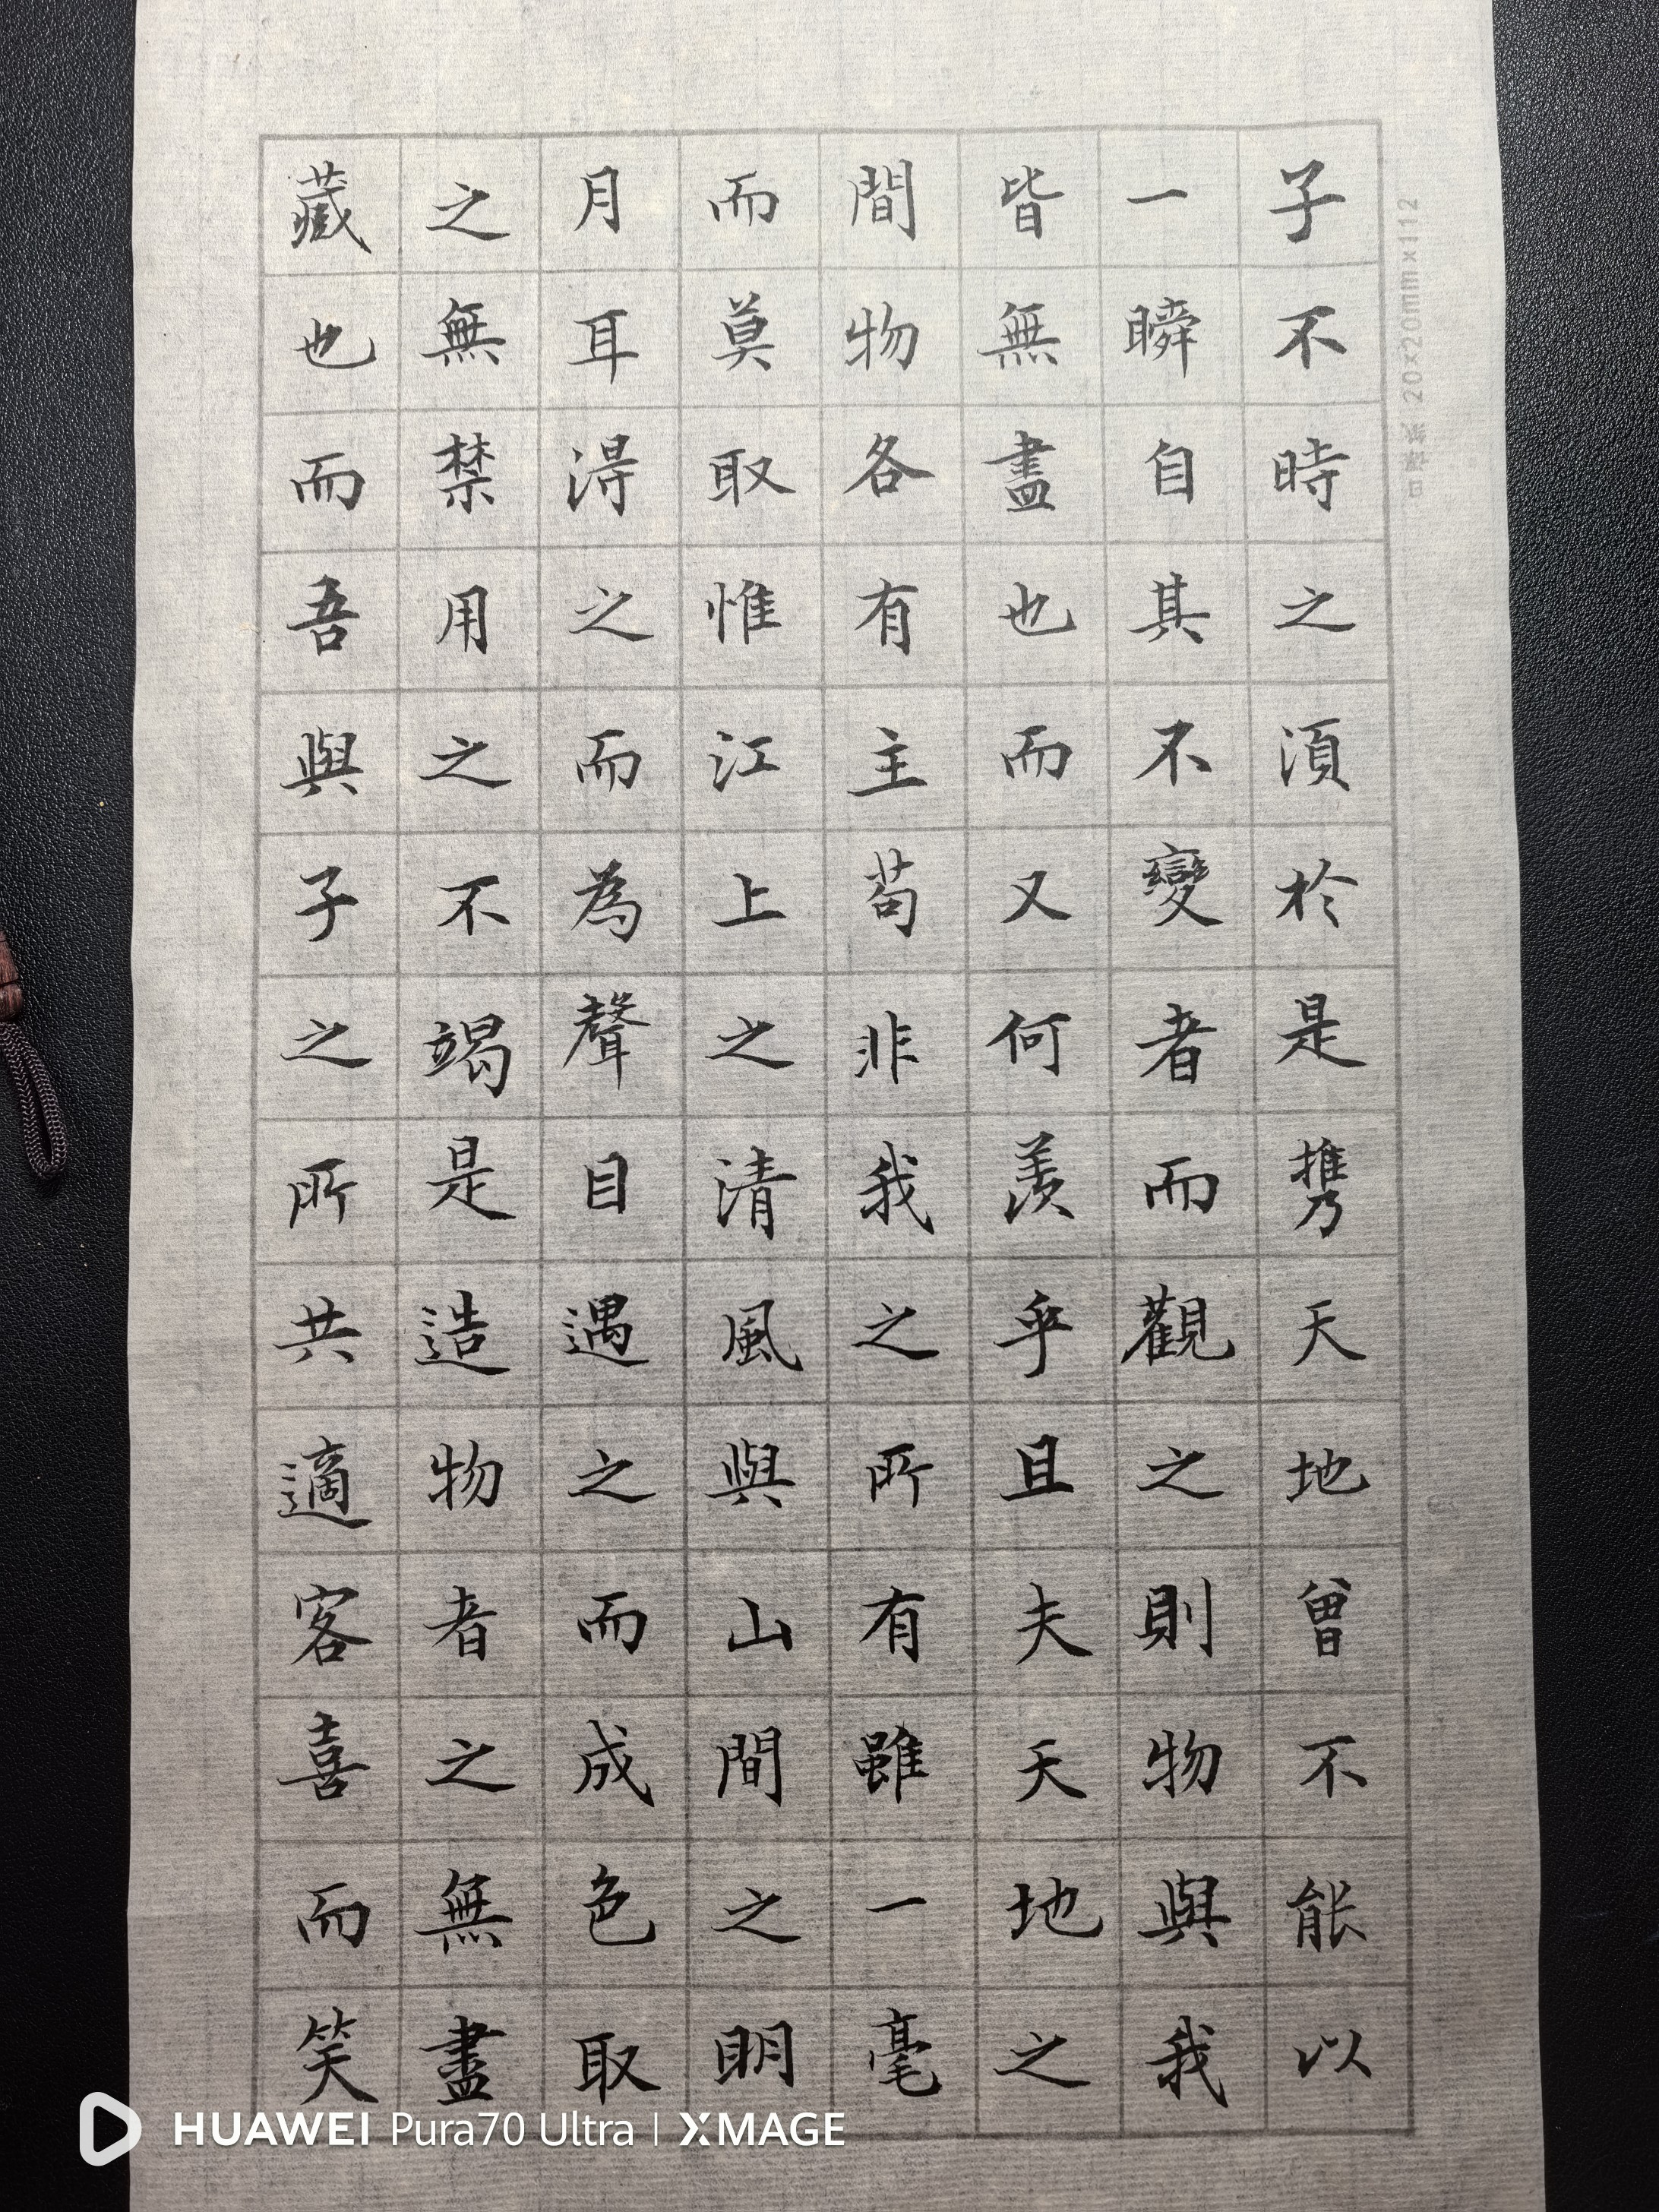 子不時之湏於是携天地曾不能以
一瞬自其不變者而觀之則物與我
皆無盡也而又何羨乎且夫天地之
間物各有主苟非我之所有雖一毫
而莫取惟江上之清風與山間之明
月耳淂之而為聲目遇之而成色取
之無禁用之不竭是造物者之無盡
藏也而吾與子之所共適客喜而笑
20×20mm×112
HUAWEI Pura70 Ultra | XMAGE